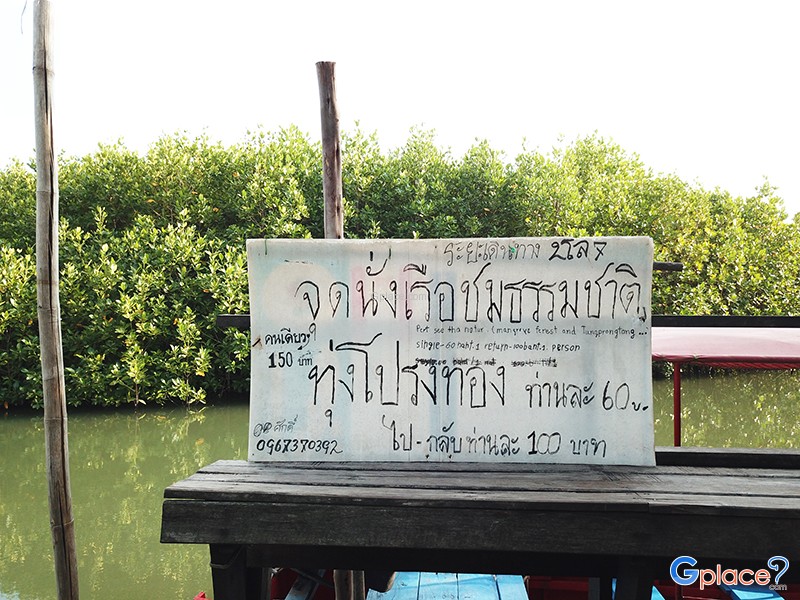 ระยะเดินทาง 2โล 7
จุดนั่งเรือชมธรรมชาติ
Port see tha natur. (mangrove forest and Tungprongtong...
คนเดียว
single-60baht.1 return-100baht.1. person
150 บาท
ทุ่งโปรงทอง ท่านละ 60.-
ศักดิ์
0967370392
ไป - กลับ ท่านละ 100 บาท
Gplace?.com